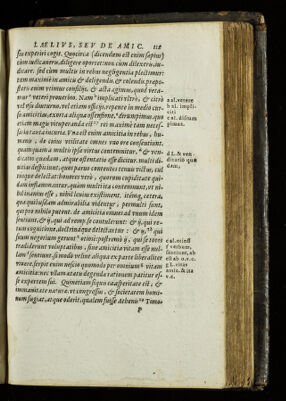 LAELIVS, SEV DE AMIC. 112
suu experiri cogit. Quocirca (dicendum est enim sæpius)
cum iudicaueris, diligere oportet: non cùm dilexeris, iu-
dicare. sed cùm multis in rebus negligentia plectimur:
tum maximè in amicis & deligendis, & colendis. præpo-
steris enim vtimur consilijs, & acta agimus, quod veta-
mur veteri prouerbio. Nam implicati vltrò, & citrò
vel vsu diuturno, vel etiam officijs, repente in medio cur-
su amicitias, exorta aliqua offensione, dirumpimus. quo
etiam magis vituperanda est rei maximè tam neces-
sariæ tanta incuria. Vna est enim amicitia in rebus, hu-
manis, de cuius vtilitate omnes vno ore consentiunt.
quanquam à multis ipsa virtus contemnitur, & ven-
ditatio quædam, atque ostentatio esse dicitur. multi di-
uitias despiciunt, quos paruo contentos tenuis victus, cul-
tusque delectat: honores verò, quorum cupiditate qui-
dam inflammantur, quàm multi ita contemnunt, vt ni-
hil inanius esse, nihil leuius existiment. itemq́; cetera,
quæ quibusdam admirabilia videntur, permulti sunt,
qui pro nihilo putent. de amicitia omnes ad vnum idem
sentiunt, & ij, qui ad remp. se contulerunt, & ij, qui re-
rum cognitione, doctrinaque delectantur: & ij, qui
suum negotium gerunt otiosi: postremò ij, qui se totos
tradiderunt voluptatibus, sine amicitia vitam esse nul-
lam sentiunt, si modo velint aliqua ex parte liberaliter
viuere. serpit enim nescio quomodo per omnium vitam
amicitia: nec vllam ætatis degendæ rationem patitur es-
se expertem sui. Quinetiam si quis ea asperitate est, &
immanitate naturæ, vt congressus, & societatem homi-
num fugiat, atque oderit, qualem fuisse Athenis Timo-
P